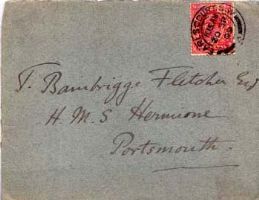 T. Bambrigge Fletcher Esq
H. M. S Hermione
Portsmouth.